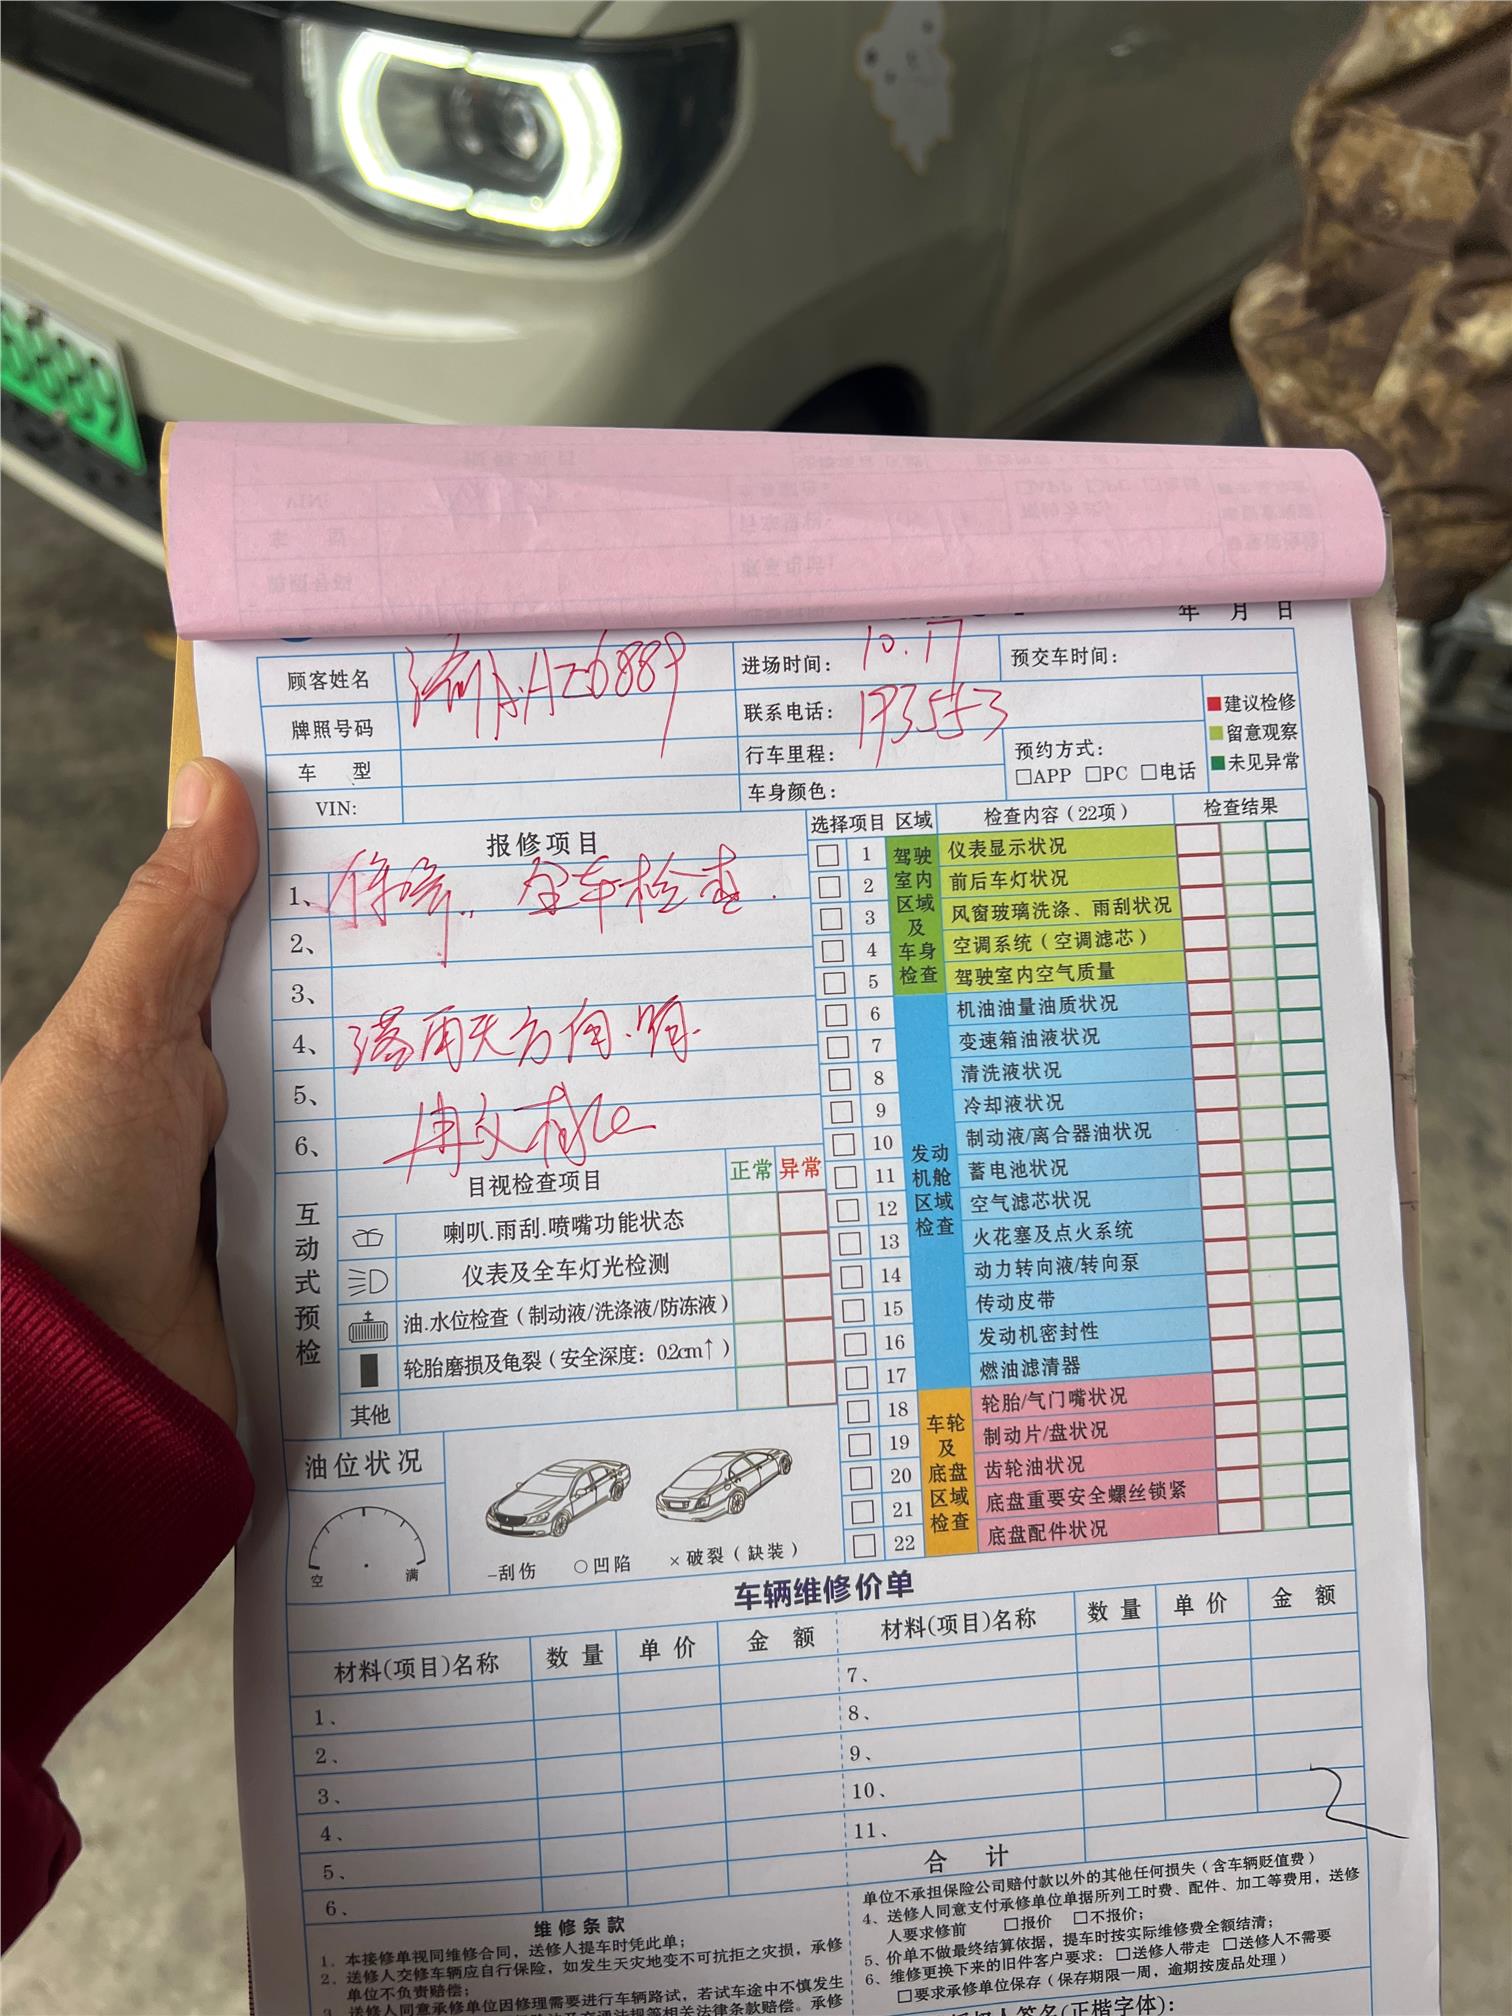 年 月 日
顾客姓名
进场时间： 10.17
预交车时间：
牌照号码 AZ6889
联系电话： 193553
建议检修
留意观察
未见异常
车 型
行车里程：
预约方式：
□APP □PC □电话
VIN：
车身颜色：
报修项目
1、 保养.. 全车检查.
2、
3、
4、
5、
6、
选择项目 区域 检查内容（22项） 检查结果
驾驶室内区域及车身检查
1 仪表显示状况
2 前后车灯状况
3 风窗玻璃洗涤、雨刮状况
4 空调系统（空调滤芯）
5 驾驶室内空气质量
发动机舱区域检查
6 机油油量油质状况
7 变速箱油液状况
8 清洗液状况
9 冷却液状况
10 制动液/离合器油状况
11 蓄电池状况
12 空气滤芯状况
13 火花塞及点火系统
14 动力转向液/转向泵
15 传动皮带
16 发动机密封性
17 燃油滤清器
车轮及底盘区域检查
18 轮胎/气门嘴状况
19 制动片/盘状况
20 齿轮油状况
21 底盘重要安全螺丝锁紧
22 底盘配件状况
互动式预检
目视检查项目 正常 异常
喇叭.雨刮.喷嘴功能状态
仪表及全车灯光检测
油.水位检查（制动液/洗涤液/防冻液）
轮胎磨损及龟裂（安全深度：0.2cm↑）
其他
油位状况
空 满
-刮伤 ○凹陷 ×破裂（缺装）
车辆维修价单
材料(项目)名称 数量 单价 金额 材料(项目)名称 数量 单价 金额
1、 7、
2、 8、
3、 9、
4、 10、
5、 11、
6、 合 计
维修条款
1、本接修单视同维修合同，送修人提车时凭此单；
2、送修人交修车辆应自行保险，如发生天灾地变不可抗拒之灾损，承修
单位不负责赔偿；
3、送修人同意承修单位因修理需要进行车辆路试，若试车途中不慎发生
相关法律条款赔偿。承修
单位不承担保险公司赔付款以外的其他任何损失（含车辆贬值费）
4、送修人同意支付承修单位单据所列工时费、配件、加工等费用，送修
人要求修前 □报价 □不报价；
5、价单不做最终结算依据，提车时按实际维修费全额结清；
6、维修更换下来的旧件客户要求：□送修人带走 □送修人不需要
□要求承修单位保存（保存期限一周，逾期按废品处理）
签名(正楷字体)：